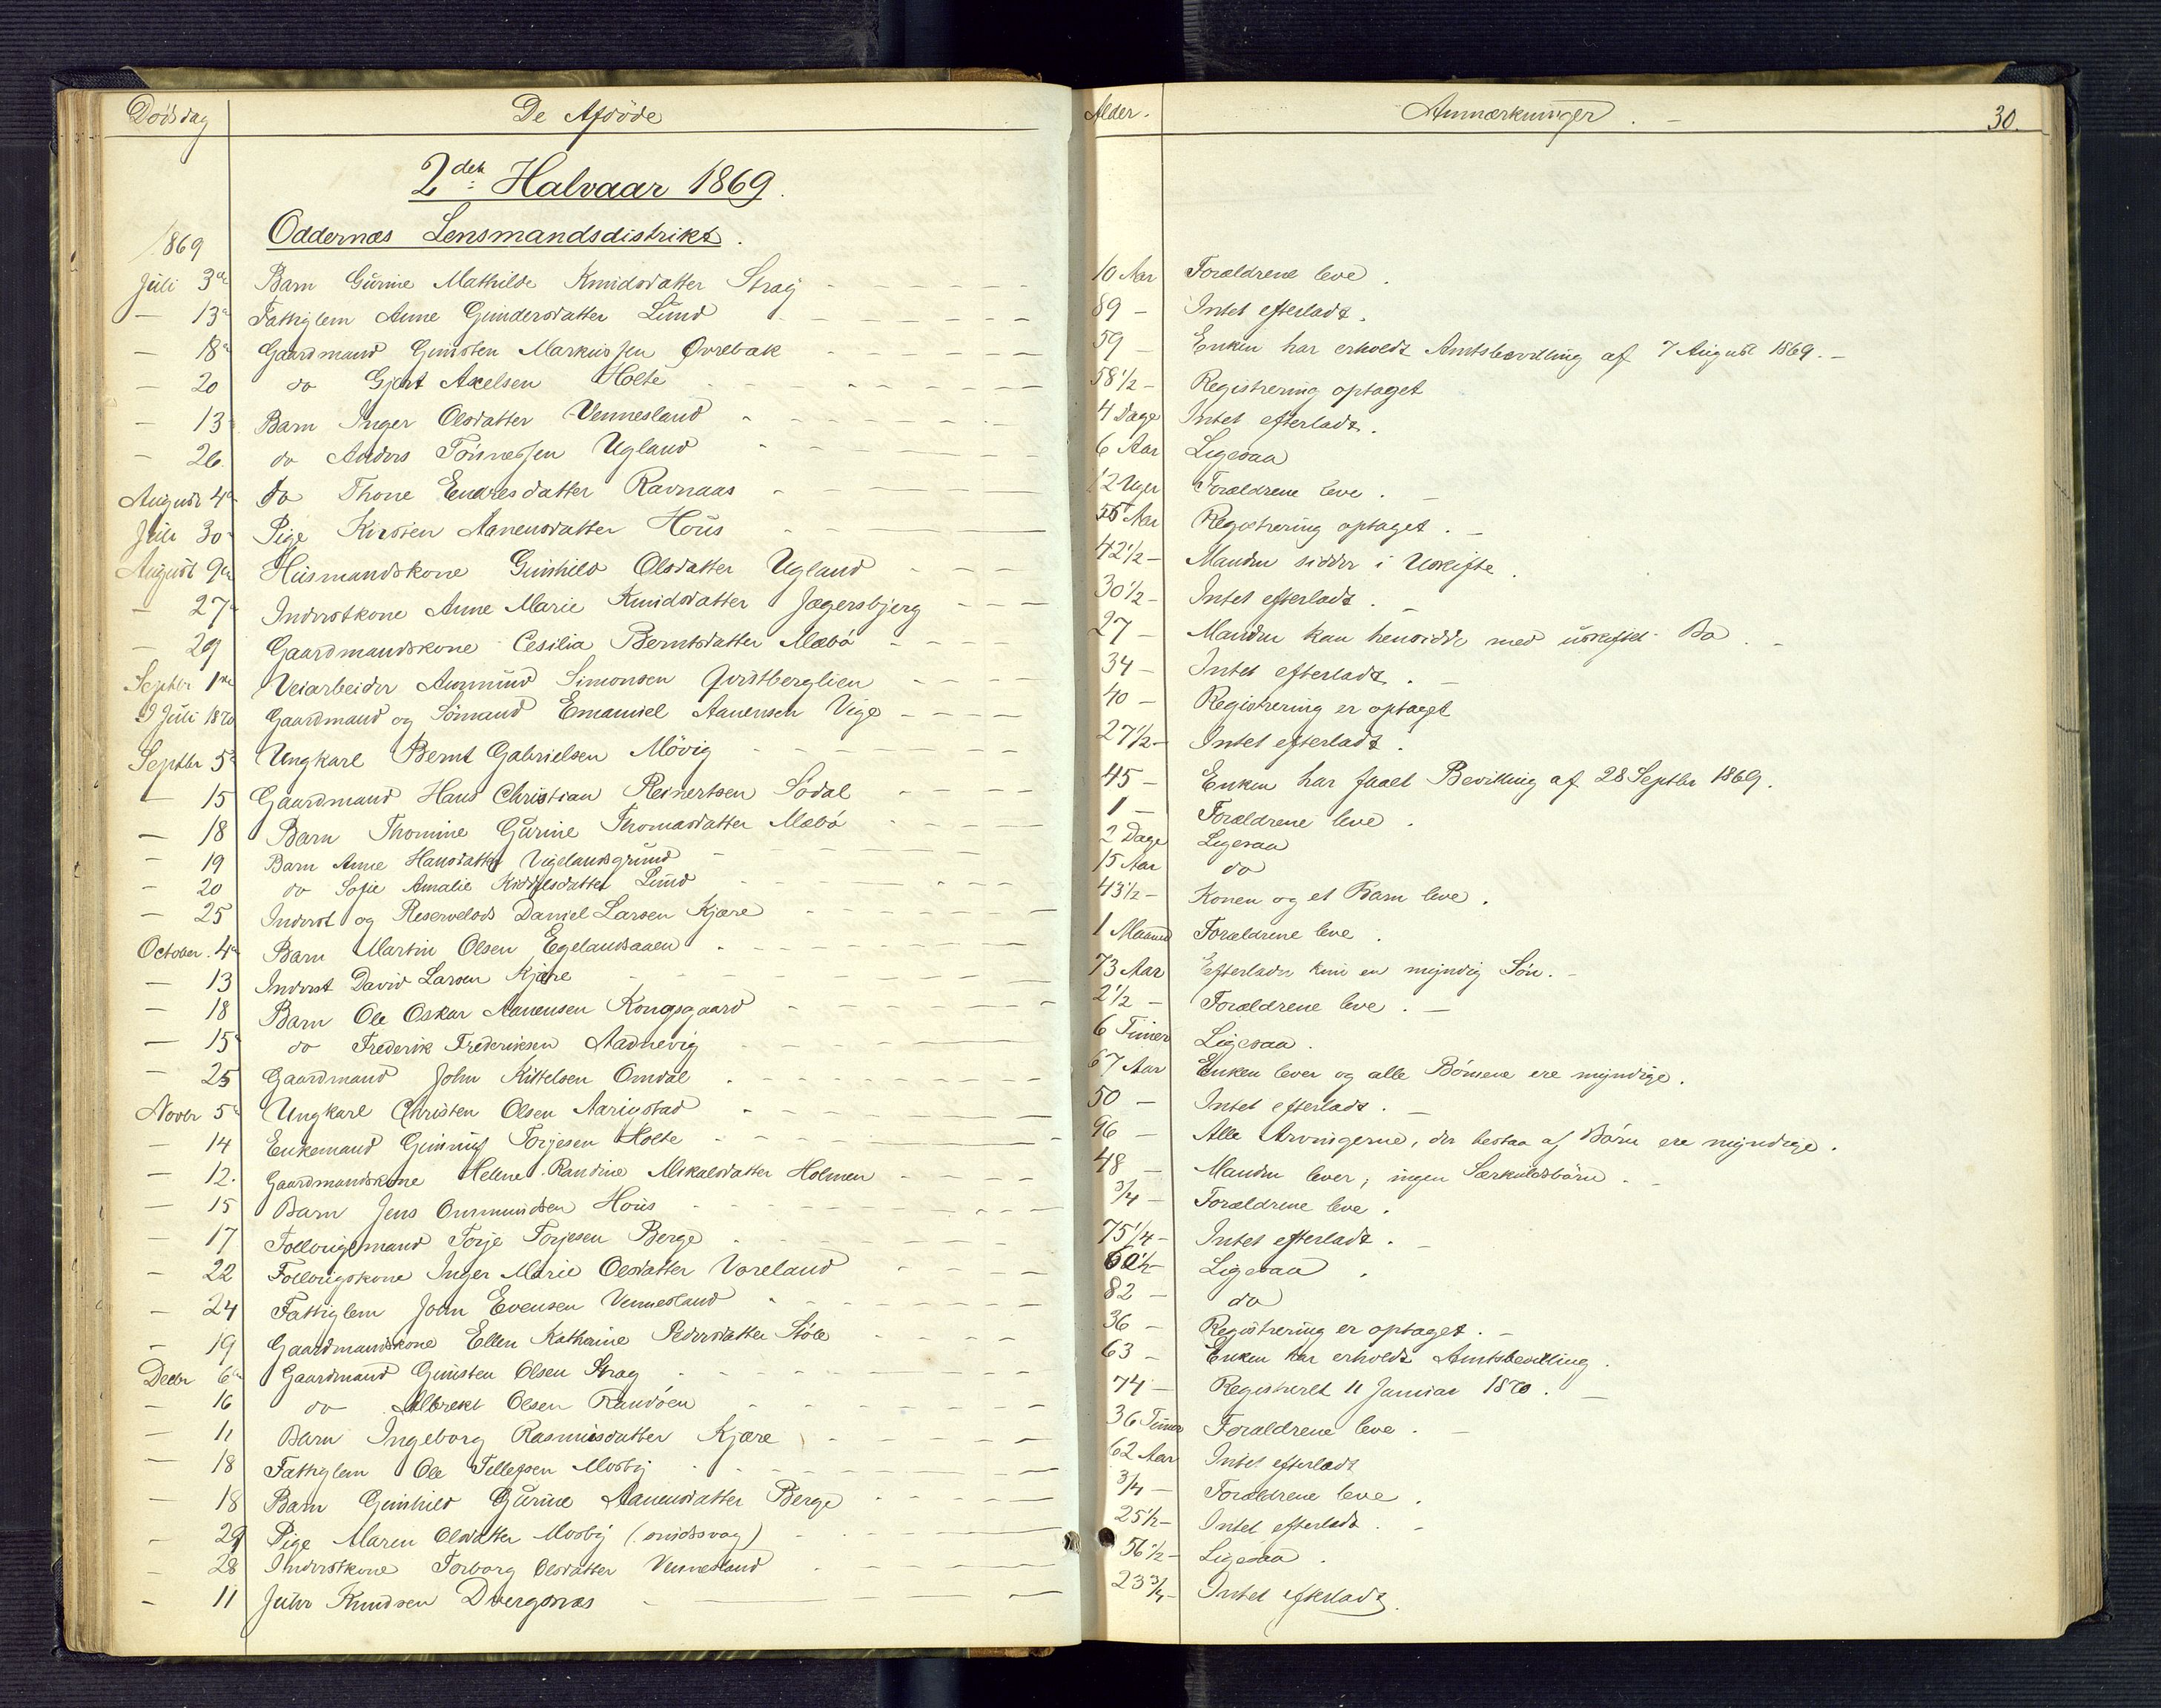 Dödsdag De Afdöde Alder. Anmærkninger. 30.
2den Halvaar 1869.
1869 Oddernæs Lensmandsdistrikt.
Juli 3de Barn Gurine Mathilde Knudsdatter Stray 10 Aar Forældrene leve.
— 13de Fattiglem Anne Gundersdatter Lund 89 — Intet efterladt.
— 18de Gaardmand Gunsten Markussen Øvrebak 59 — Enken har erholdt Amtsbevilling af 7 August 1869. —
— 20 do Gjert Axelsen Holte 58 1/2 — Registrering optaget
— 13 Barn Inger Olsdatter Vennesland 4 Dage Intet efterladt.
— 26. do Anders Tönnessen Ugland 6 Aar Ligesaa
August 4de do Thone Endresdatter Ravnaas 12 Uger Forældrene leve. —
Juli 30 Pige Kirsten Aanensdatter Hous 55 Aar Registrering optaget. —
August 9de Husmandskone Gunhild Olsdatter Ugland 42 1/2 — Manden sidder i Uskifte.
— 27 Inderstkone Anne Marie Knudsdatter Jægersbjerg 30 1/2 — Intet efterladt. —
— 29 Gaardmandskone Cesilia Berntsdatter Mæbö 27 — Manden kan hensidde med uskiftet Bo. —
Septbr 1ste Veiarbeider Aanmund Simonsen 34 — Intet efterladt. —
9 Juli 1870 Gaardmand og Sömand Emanuel Aanensen Vige 40 — Registrering er optaget
Septbr 5te Ungkarl Bernt Gabrielsen Mövig 27 1/2 — Intet efterladt.
— 15 Gaardmand Hans Christian Reinertsen Södal 45 — Enken har faaet Bevilling af 28 Septbr 1869.
— 18 Barn Thomine Gurine Thomasdatter Mæbö 1 — Forældrene leve.
— 19 Barn Anne Hansdatter Vigelandsgrund 2 Dage Ligesaa
— 20 do Sofie Amalie Kiddelsdatter Lund 15 Aar do
— 25 Inderst og Reservelods Daniel Larsen Kjære 43 1/2 — Konen og et Barn leve.
October. 4de Barn Martin Olsen Egelandsaaen 1 Maaned Forældrene leve.
— 13 Inderst David Larsen Kjære 73 Aar Efterlader kun en myndig Sön. —
— 18 Barn Ole Oskar Aanensen Kongsgaard 2 1/2 — Forældrene leve. —
— 15de do Frederik Frederiksen Aadnevig 6 Timer Ligesaa.
— 25 Gaardmand John Kittelsen Omdal 67 Aar Enken lever og alle Börnene ere myndige.
Novbr 5te Ungkarl Christen Olsen Aarigstad 50 — Intet efterladt. —
— 14 Enkemand Gunnuf Torjesen Holte 96 — Alle Arvingerne, der bestaa af Börn ere myndige.
— 12. Gaardmandskone Helene Randine Mikalsdatter Holmen 48 — Manden lever, ingen Særkuldsbörn. —
— 15 Barn Jens Ommundsen Hous 3/4 — Forældrene leve.
— 17 Föllougsmand Torje Torjesen Berge 75 1/4 — Intet efterladt. —
— 22 Föllougskone Inger Marie Olsdatter Voreland 60 1/2 — Ligesaa.
— 24 Fattiglem John Evensen Vennesland 82 — do
— 19 Gaardmandskone Ellen Kathrine Pedersdatter Stöle 36 — Registrering er optaget. —
Decbr 6te Gaardmand Gunsten Olsen Stray 63 — Enken har erholdt Amtsbevilling.
— 16 do Albrekt Olsen Randöen 74 — Registreret 11 Januar 1870. —
— 11 Barn Ingeborg Rasmusdatter Kjære 36 Timer Forældrene leve. —
— 18 Fattiglem Ole Tellefsen Mosby 62 Aar Intet efterladt
— 18 Barn Gunhild Gurine Aanensdatter Berge 3/4 — Forældrene leve.
— 29 Pige Maren Olsdatter Mosby (sindssvag) 25 1/2 — Intet efterladt. —
— 28 Inderstkone Torborg Olsdatter Vennesland 56 1/2 — Ligesaa.
— 11 Knudsen Dvergsnæs 23 3/4 — Intet efterladt.